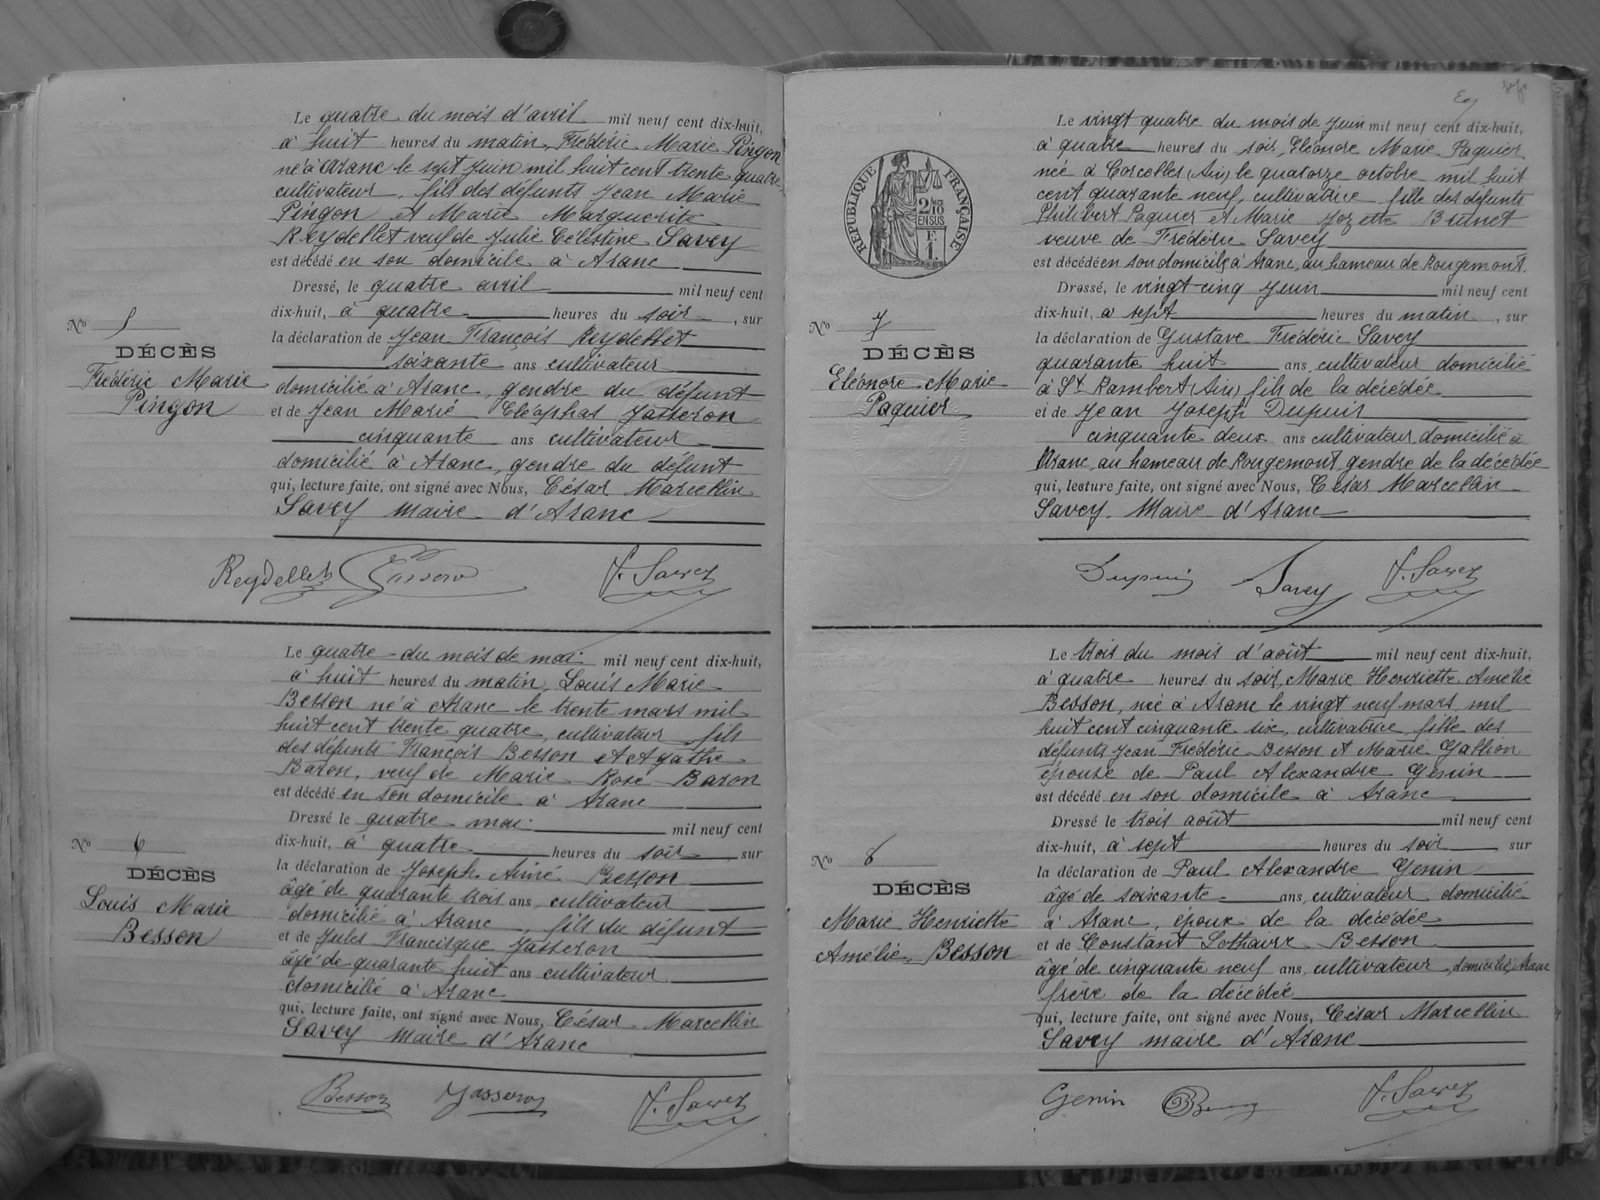 Le quatre du mois d'avril mil neuf cent dix-huit,
à huit heures du matin, Frédéric Marie Pingon
né à Aranc le sept juin mil huit cent trente quatre
cultivateur, fils des défunts Jean Marie
Pingon et Marie Marguerite
Reydellet veuf de Julie Célestine Savey
est décédé en son domicile à Aranc
Dressé, le quatre avril mil neuf cent
dix-huit, à quatre heures du soir, sur
la déclaration de Jean François Reydellet
soixante ans cultivateur
domicilié à Aranc, gendre du défunt
et de Jean Marie Cléophas Jasseron
cinquante ans cultivateur
domicilié à Aranc, gendre du défunt
qui, lecture faite, ont signé avec Nous, César Marcellin
Savey maire d'Aranc
No 5
DÉCÈS
Frédéric Marie
Pingon
Reydellet J. Savey
Le quatre du mois de mai mil neuf cent dix-huit,
à huit heures du matin, Louis Marie
Besson né à Aranc le trente mars mil
huit cent trente quatre, cultivateur, fils
des défunts François Besson et Agathe
Baron, veuf de Marie Rose Baron
est décédé en son domicile à Aranc
Dressé le quatre mai mil neuf cent
dix-huit, à quatre heures du soir sur
la déclaration de Joseph Aimé Besson
âgé de quarante trois ans, cultivateur
domicilié à Aranc, fils du défunt
et de Jules Francisque Jasseron
âgé de quarante huit ans cultivateur
domicilié à Aranc
qui, lecture faite, ont signé avec Nous, César Marcellin
Savey maire d'Aranc
No 6
DÉCÈS
Louis Marie
Besson
Besson Jasseron J. Savey
RÉPUBLIQUE FRANÇAISE
2/10
EN SUS
F.
1.
Le vingt quatre du mois de juin mil neuf cent dix-huit,
à quatre heures du soir, Eléonore Marie Paquier
née à Corcelles (Ain) le quatorze octobre mil huit
cent quarante neuf, cultivatrice fille des défunts
Philibert Paquier et Marie Jozette Brunet
veuve de Frédéric Savey
est décédé en son domicile à Aranc, au hameau de Rougemont.
Dressé, le vingt-cinq juin mil neuf cent
dix-huit, à sept heures du matin, sur
la déclaration de Gustave Frédéric Savey
quarante huit ans, cultivateur domicilié
à St Rambert (Ain) fils de la décédée
et de Jean Joseph Dupuis
cinquante deux ans cultivateur domicilié à
Aranc, au hameau de Rougemont gendre de la décédée
qui, lecture faite, ont signé avec Nous, César Marcellin
Savey Maire d'Aranc
No 7
DÉCÈS
Eléonore Marie
Paquier
Dupuis Savey J. Savey
Le trois du mois d'août mil neuf cent dix-huit,
à quatre heures du soir, Marie Henriette Amélie
Besson, née à Aranc le vingt neuf mars mil
huit cent cinquante six, cultivatrice fille des
défunts Jean Frédéric Besson et Marie Gathon
épouse de Paul Alexandre Genin
est décédé en son domicile à Aranc
Dressé le trois août mil neuf cent
dix-huit, à sept heures du soir sur
la déclaration de Paul Alexandre Genin
âgé de soixante ans, cultivateur domicilié
à Aranc, époux de la décédée
et de Constant Lothaire Besson
âgé de cinquante neuf ans, cultivateur, domicilié à Aranc
frère de la décédée
qui, lecture faite, ont signé avec Nous, César Marcellin
Savey maire d'Aranc
No 8
DÉCÈS
Marie Henriette
Amélie Besson
Genin J. Savey